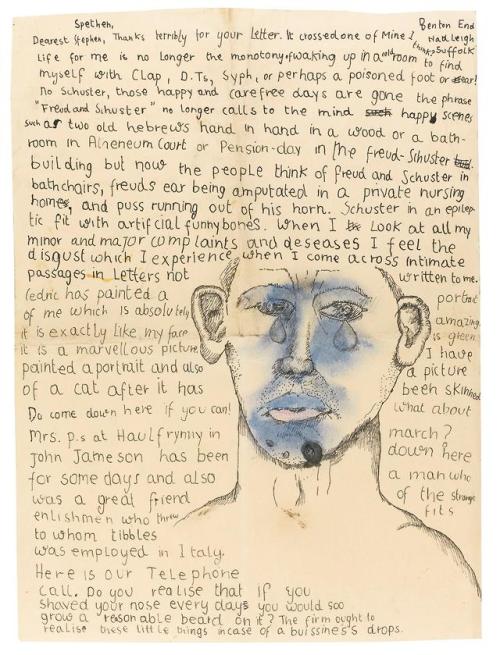 Spethen,
Benton End
Hadleigh
Suffolk
Dearest Stephen, Thanks terribly for your Letter. It crossed one of Mine! I think
Life for me is no longer the monotony of waking up in a cold room to find
myself with Clap, D.Ts, Syph, or perhaps a poisoned foot or ear!
No Schuster, those happy and carefree days are gone the phrase
"Freud and Schuster" no longer calls to the mind such happy scenes
such as two old hebrews hand in hand in a wood or a bath-
room in Atheneum Court or Pension-day in the freud-Schuster
building but now the people think of Freud and Schuster in
bathchairs, freuds ear being amputated in a private nursing
home, and puss running out of his horn. Schuster in an epilep
tic fit with artifcial funnybones. When I Look at all my
minor and major complaints and deseases I feel the
disgust which I experience when I come across intimate
passages in Letters not written to me.
Cedric has painted a portrait
of me which is absolutely amazing.
it is exactly like my face is green
it is a marvellous picture I have
painted a portrait and also a picture
of a cat after it has been skinned
Do come down here if you can! what about
Mrs. p.s at Haulfrynny in march?
John Jameson has been down here
for some days and also a man who
was a great friend of the strange
enlishmen who threw fits
to whom tibbles
was employed in Italy.
Here is our Telephone
call. Do you realise that if you
shaved your nose every days you would soo
grow a reasonable beard on it? The firm ought to
realise these little things incase of a buissine's drops.